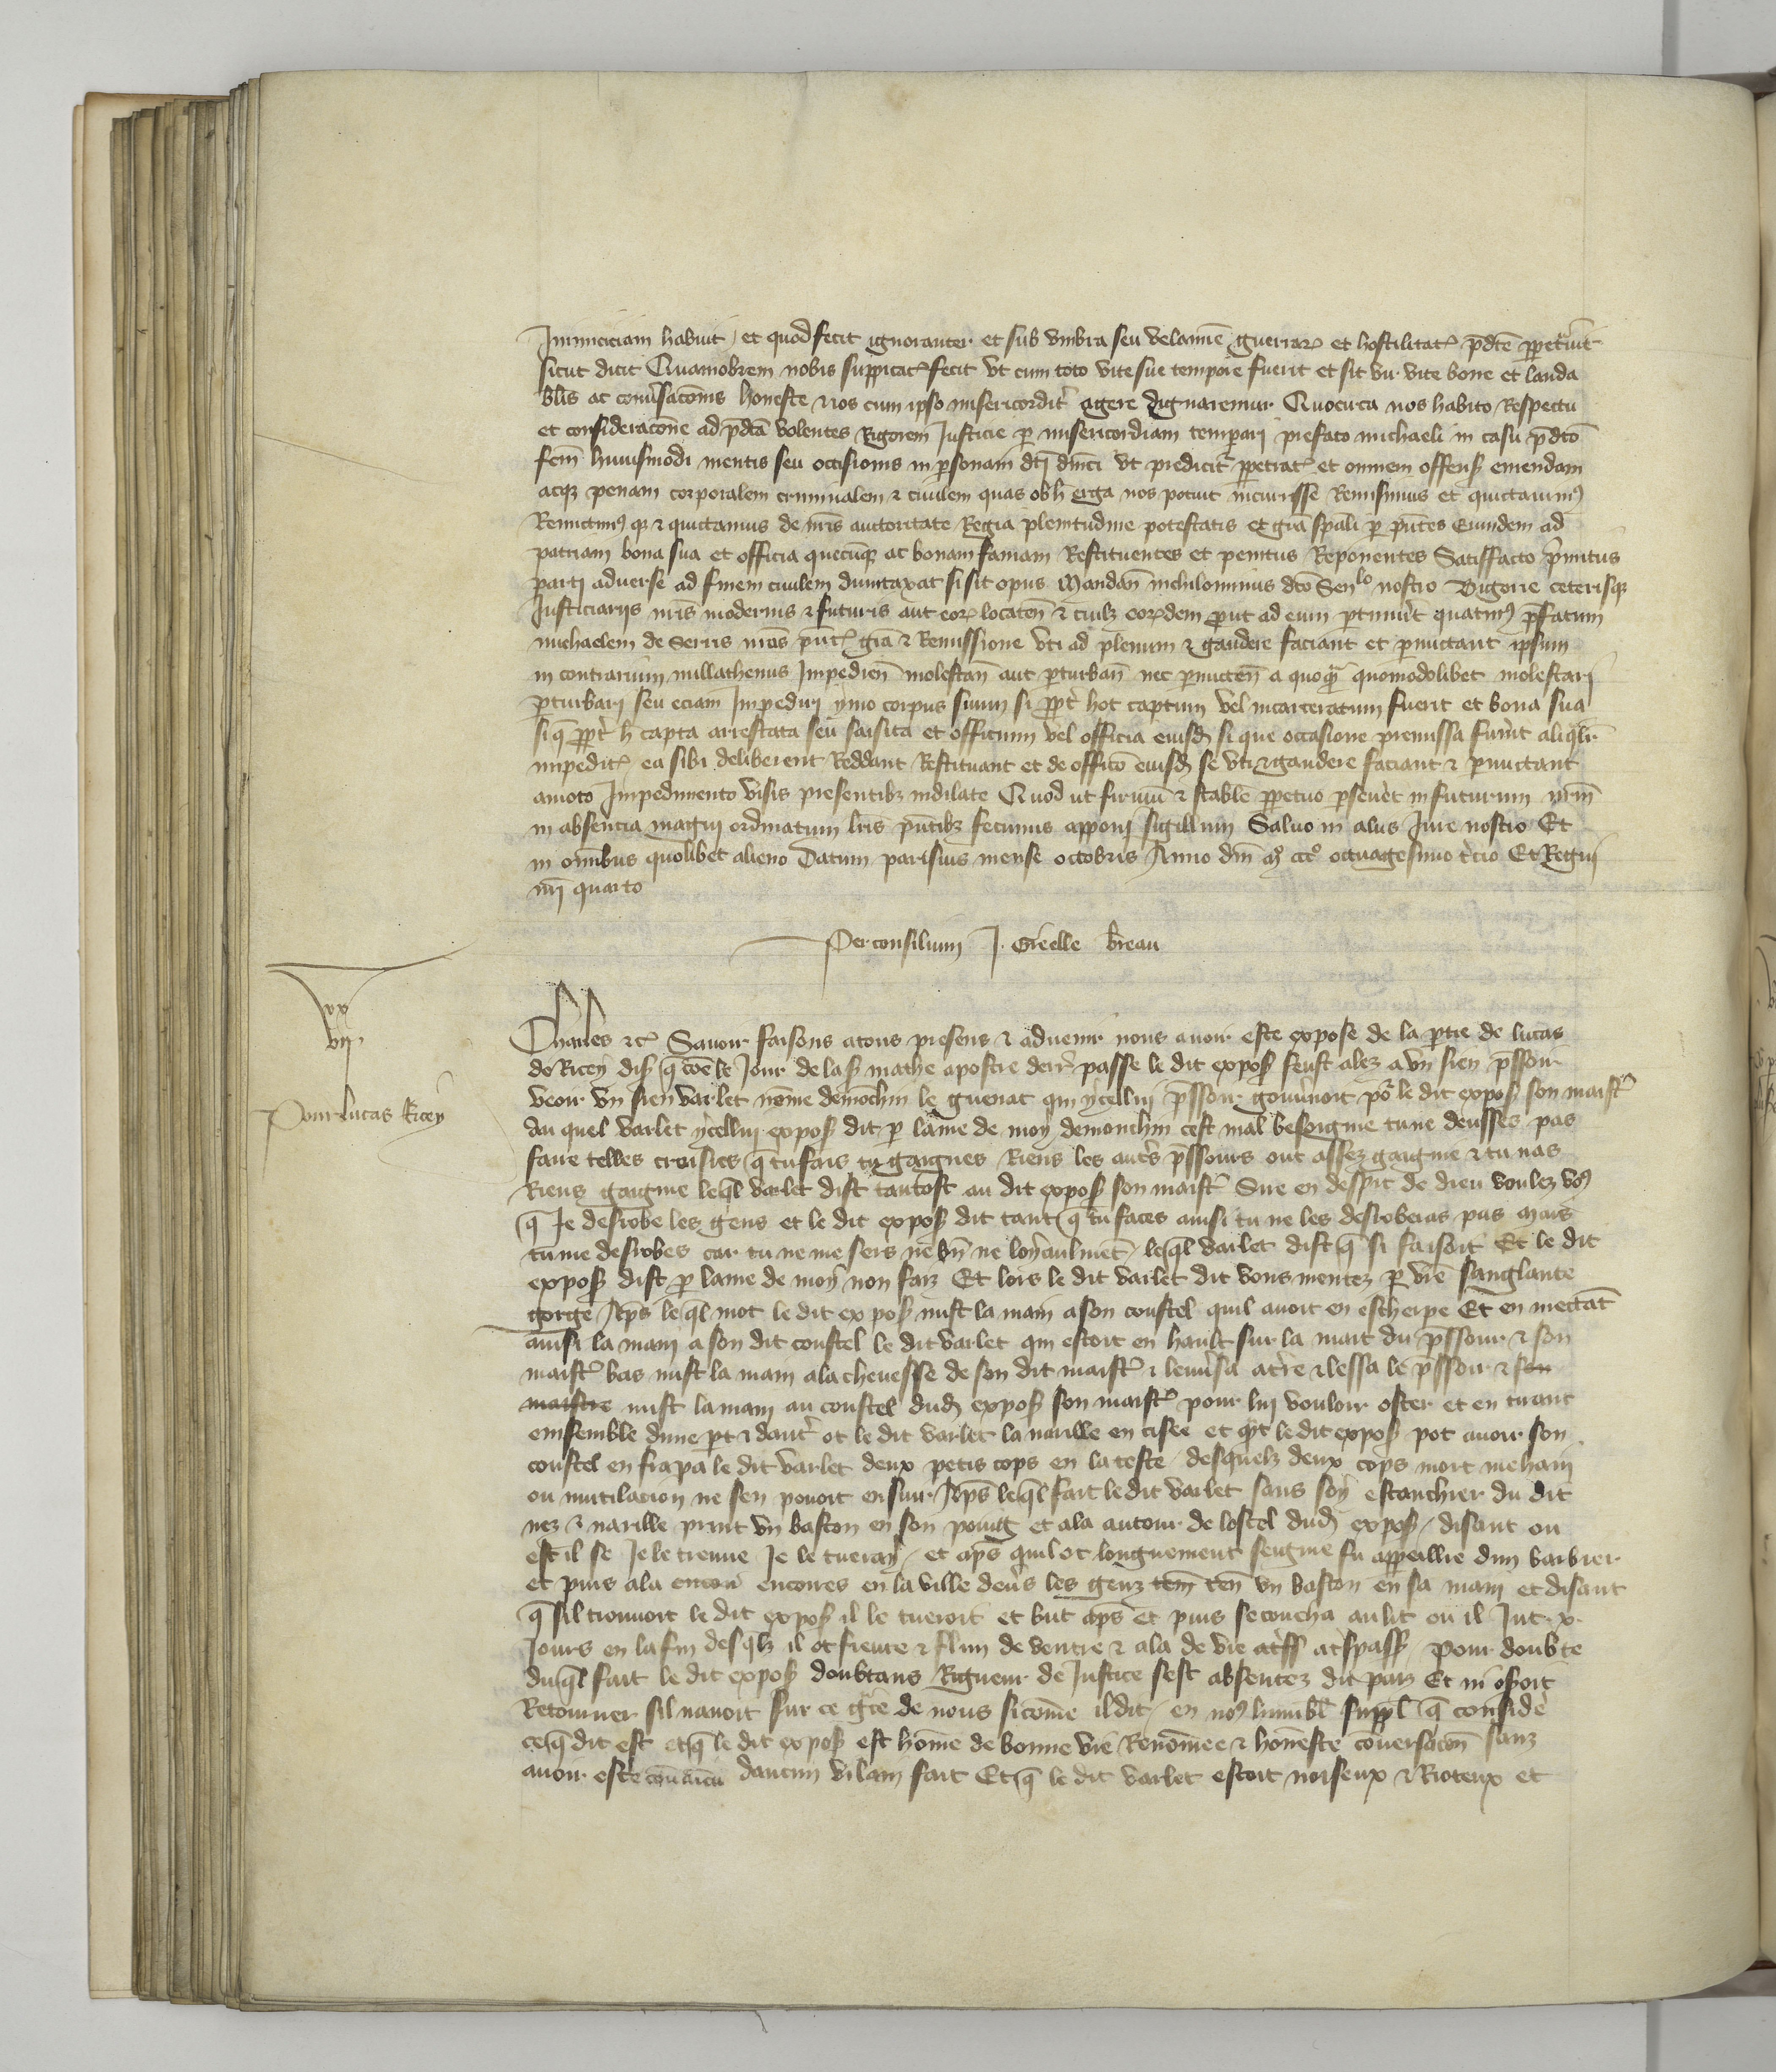 Inimiciciam habuit / et quod fecit ignoranter et sub umbra seu velamine guerrar. et hostilitat. pdce ppetuit
sicut dicit Quamobrem nobis supplicar. fecit ut cum toto vite sue tempore fuerit et sit vir vite bone et lauda
blis ac conversacois honeste nos cum ipso misericordit agere dignaremur Quocirca nos habito Respectu
et consideracone ad pdca volentes Rigorem Justicie per misericordiam temperari prefato michaeli in casu pdco
fcm huiusmodi mentis seu occisionis in personam dci dnici ut predicit ppetrat. et omnem offens. emendam
acqz penam corporalem criminalem et civilem quas ob h erga nos potuit incurisse Remisimus et quictavim9
Remictim9 qz et quictamus de nris auctoritate Regia plenitudine potestatis et gra spali per pntes Eumdem ad
patriam bona sua et officia quecunqz ac bonam famam Restituentes et penitus Reponentes Satisfacto primitus
parti adverse ad finem civilem dumtaxat si sit opus Mandan nichilominus dco Senlo nostro Bigorre ceterisqz
Justiciariis nris modernis et futuris aut eor. locaten et cuilz eor.dem prout ad eum ptinuit quatin9 pfatum
michaelem de Serris nris pnt. gra et Remissione uti ad plenum et gaudere faciant et permictant ipsum
in contrarium nullathenus Impedien molestan aut perturban nec permicten a quoqm quomodolibet molestari
perturbari seu eciam Impediri ymo corpus suum si ppt hoc captum vel incarceratum fuerit et bona sua
si q ppt h capta arrestata seu saisita et officium vel officia eiusd si que occasione premissa fuerit aliqlr
impedit. ea sibi deliberent Reddant Restituant et de officio eiusd se uti et gaudere faciant et permictant
amoto Impedimento visis presentibz indilate Quod ut firmu et stabile ppetuo perseveret in futurum nrm
in absencia magni ordinatum lris pntibz fecimus apponi sigillum Salvo in aliis Jure nostro Et
in omnibus quolibet alieno Datum parisius mense octobris Anno dni mo ccco octuagesimo tcio Et Regni
nri quarto
Per consilium J. Greelle breau
xx
vii.
Pour lucas Ricey
Charles etc Savoir faisons a tous presens et advenir nous avoir este expose de la ptie de lucas
de Ricey dis. q coe le Jour de la s. mathe apostre derr. passe le dit expos. feust alez a un sien pssour
veoir un sien varlet nome demochin le guenat qui ycellui pssour gouvnoit po le dit expos. son maistr
du quel varlet ycellui expos. dit p lame de moy demonchin cest mal besoigne tu ne deusses pas
faire telles croisies q tu fais tu gaignes Riens les autes pssours ont assez gaigne et tu nas
Riens gaigne leql varlet dist tantost au dit expos. son maistr Sire en despit de dieu voulez vo9
q Je desrobe les gens et le dit expos. dit tant q tu faces ainsi tu ne les desroberas pas mais
tu me desrobes car tu ne me sers ne bn ne loyaulmet / leql varlet dist q si faisoit Et le dit
expos. dist p lame de moy non faiz Et lors le dit varlet dit vous mentez p vre sanglante
gorge Aps leql mot le dit expos. mist la main a son coustel quil avoit en escherpe Et en mectat
ainsi la main a son dit coustel le dit varlet qui estoit en hault sur la mait du pssour et son
maistr bas mist la main a la chevesse de son dit maistr et lenvsa a tre et lessa le pssour et son
maistre mist la main au coustel dud expos. son maistr pour lui vouloir oster et en tirant
ensemble dune pt et daut ot le dit varlet la narille encisee et qt le dit expos. pot avoir son
coustel en frapa le dit varlet deux petis cops en la teste desquelz deux cops mort mehain
ou mutilacion ne sen povoit ensuir Aps leql fait le dit varlet sans soy estanchier du dit
nez et narille print un baston en son poing et ala autour de lostel dud expos. / disant ou
est il se Je le treuve Je le tueray / et aps quil ot longuement seigne fu appeillie dun barbier
et puis ala encor encores en la ville devs les genz tem ten un baston en sa main et disant
q sil trouvoit le dit expos. il le tueroit et but aps et puis se coucha au lit ou il Jut .x.
Jours en la fin desqlz il ot fievre et flun de ventre et ala de vie a trss a trspass. Pour doubte
duql fait le dit expos. doubtans Rigueur de Justice sest absentez du pais Et ni oseroit
Retourner sil navoit sur ce gce de nous si come il dit / en no9 humbl suppl q conside
ce q dit est et q le dit expos. est home de bonne vie Renomee et honeste coversacon sanz
avoir este convaicu daucun vilain fait Et q le dit varlet estoit noiseux et Rioteux et